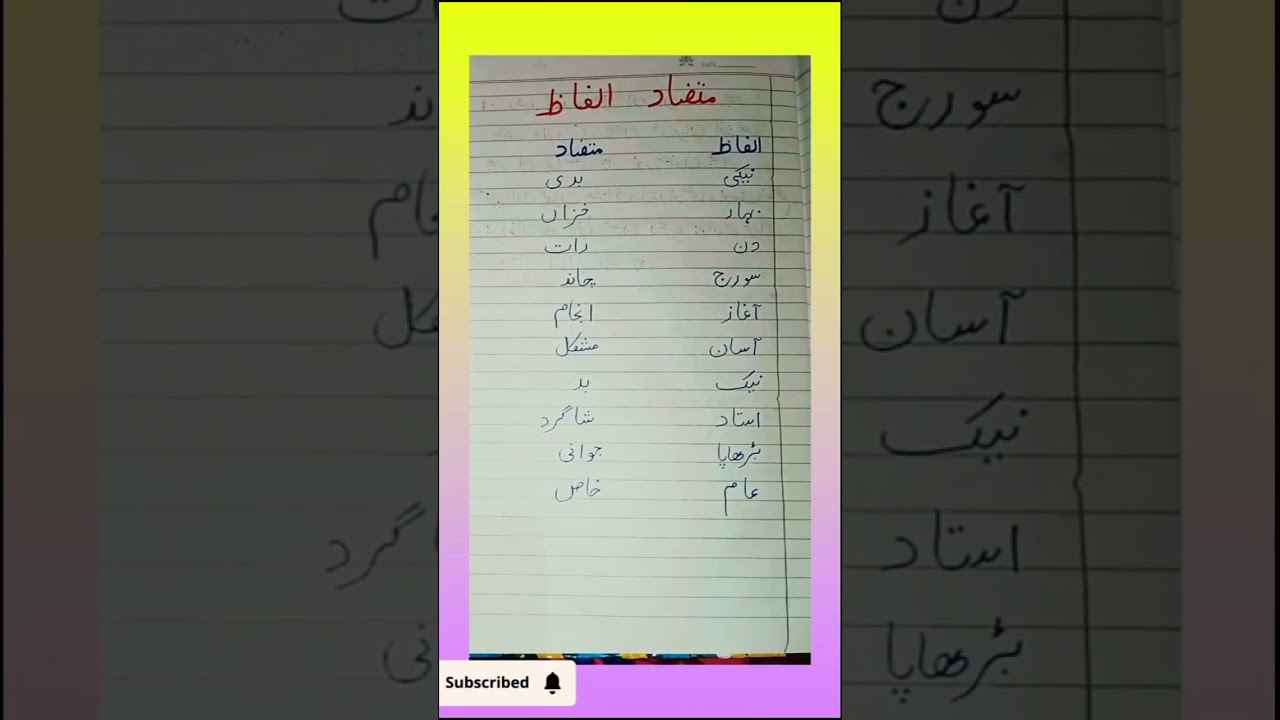 متضاد الفاظ
الفاظ متضاد
نیکی بدی
بہار خزاں
دن رات
سورج چاند
آغاز انجام
آسان مشکل
نیک بد
استاد شاگرد
بڑھاپا جوانی
عام خاص
Subscribed